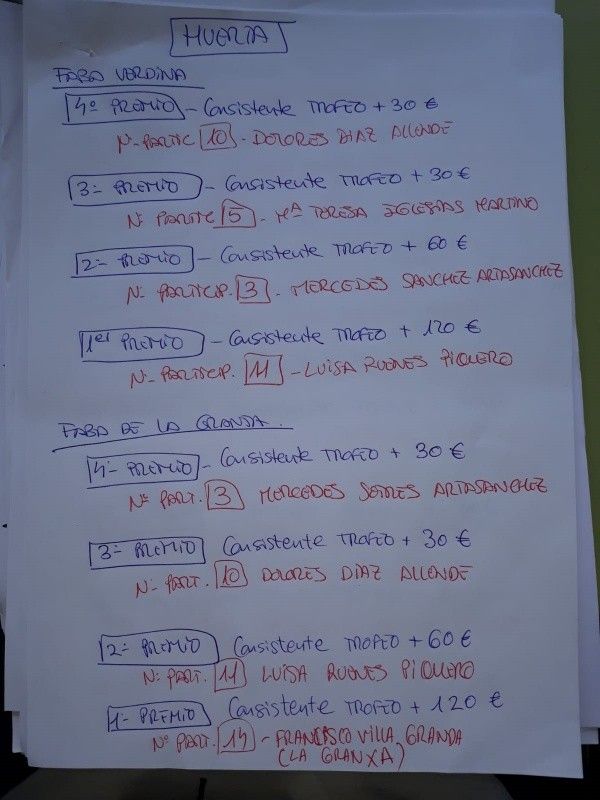 HUERTA
FABA VERDINA
4º PREMIO - Consistente TROFEO + 30 €
Nº PARTIC 10 - DOLORES DIAZ ALLENDE
3º PREMIO - Consistente TROFEO + 30 €
Nº PARTIC 5 - Mª TERESA IGLESIAS MARTINO
2º PREMIO - Consistente TROFEO + 60 €
Nº PARTICIP. 3 - MERCEDES SANCHEZ ARTASANCHEZ
1er PREMIO - Consistente TROFEO + 120 €
Nº PARTICIP. 11 - LUISA RUENES PIQUERO
FABA DE LA GRANJA.
4º PREMIO - Consistente TROFEO + 30 €
Nº PART. 3 MERCEDES ARTASANCHEZ
3º PREMIO Consistente TROFEO + 30 €
Nº PART. 10 DOLORES DIAZ ALLENDE
2º PREMIO Consistente TROFEO + 60 €
Nº PART. 11 LUISA RUENES PIQUERO
1º PREMIO Consistente TROFEO + 120 €
Nº PART. 14 - FRANCISCO VILLA GRANDA
(LA GRANXA)